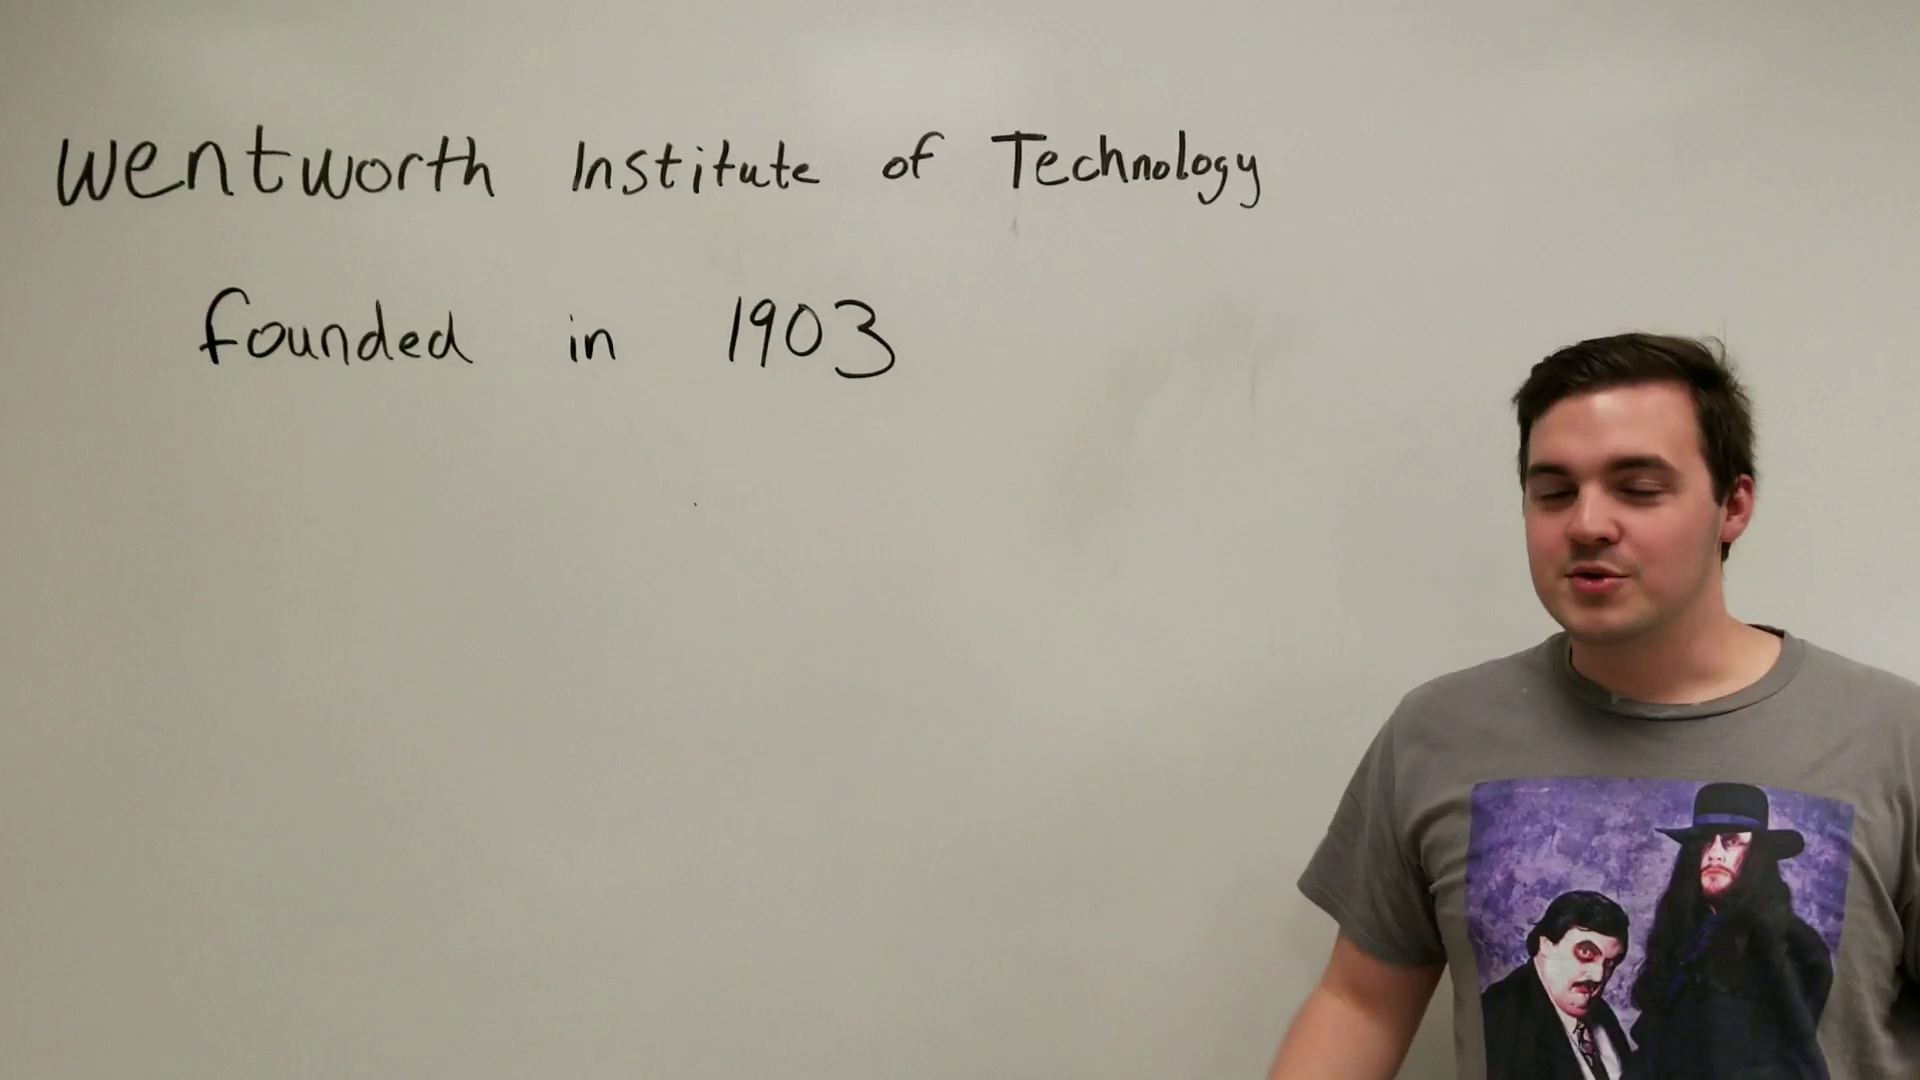 Wentworth Institute of Technology
founded in 1903